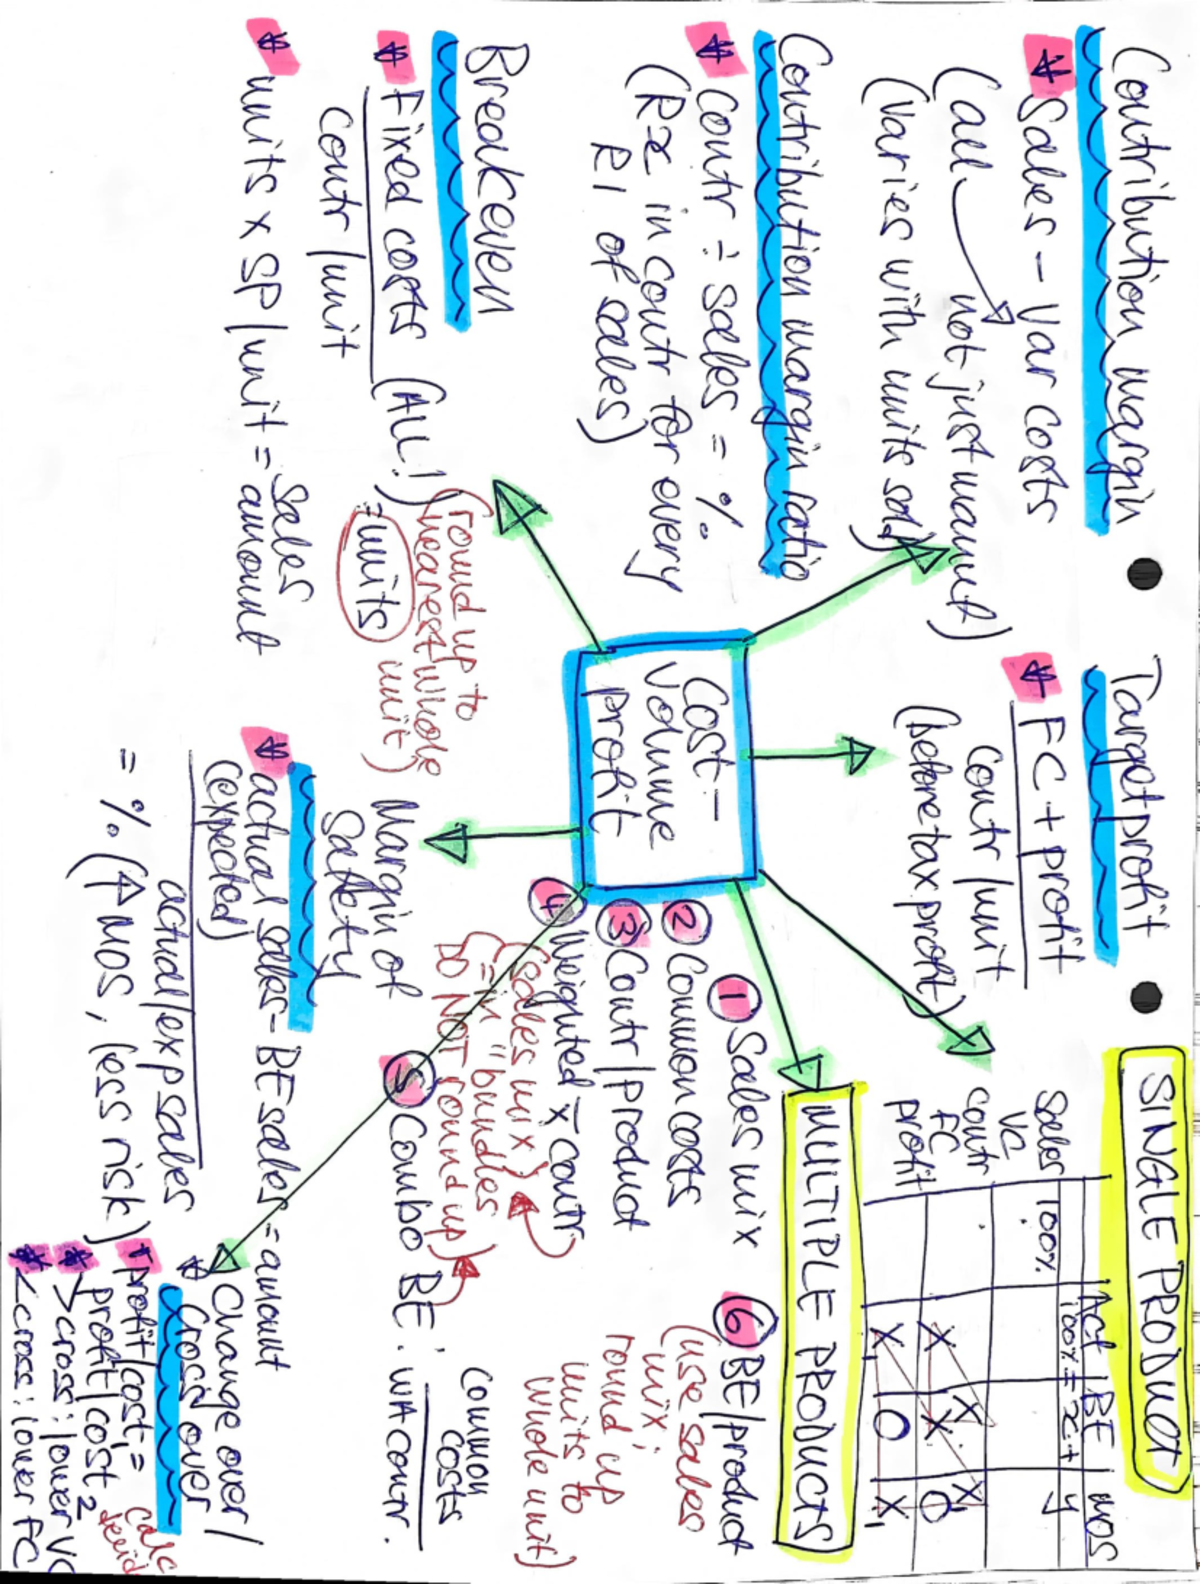 Contribution margin
* Sales - Var costs
(all → not just manuf)
(varies with units sold)
Contribution margin ratio
* Contr ÷ sales = %
(Rx in contr for every
R1 of sales)
Breakeven
* Fixed costs (ALL!)
Contr/unit
= units
(round up to
nearest whole
unit)
* units x SP/unit = Sales
amount
Cost-
volume
profit
Target profit
* FC + profit
Contr/unit
(before tax profit)
Margin of
Safety
* actual sales - BE sales = amount
(expected)
actual/exp sales
= % (↑ MOS, less risk)
SINGLE PRODUCT
Act BE MOS
100% = x + y
Sales 100%
VC
Contr X X
FC X X O
profit X O X
MULTIPLE PRODUCTS
① Sales mix
② Common costs
③ Contr/product
④ Weighted x̄ contr
(sales mix)
= in "bundles"
DO NOT round up)
⑤ Combo BE: Common
costs
WA contr.
⑥ BE/product
(use sales
mix;
round up
units to
whole unit)
* Change over /
Cross over
* profit/cost₁ =
profit/cost₂
* > cross: lower VC
* < cross: lower FC
calc